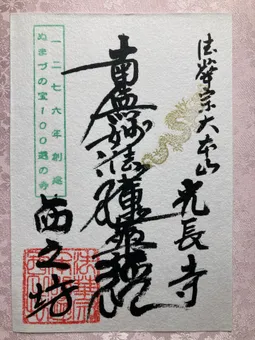 法華宗大本山 光長寺
南無妙法蓮華経
西之坊
一二七六年創建
ぬまづの宝100選の寺